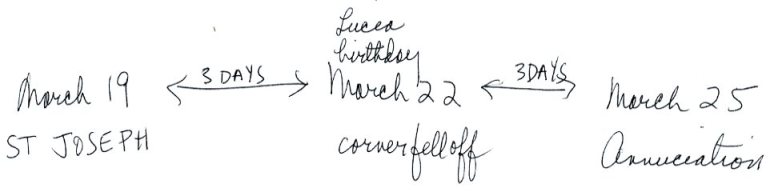 Lucea
birthday
March 19 3 DAYS March 22 3 DAYS March 25
ST JOSEPH corner fell off Annuciation